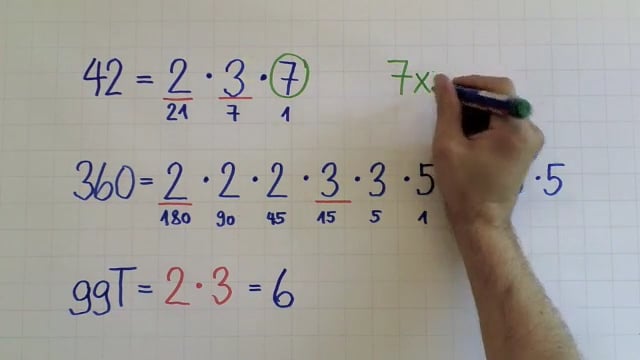 42 = 2 · 3 · 7 7x
21 7 1
360 = 2 · 2 · 2 · 3 · 3 · 5 · 5
180 90 45 15 5 1
ggT = 2 · 3 = 6